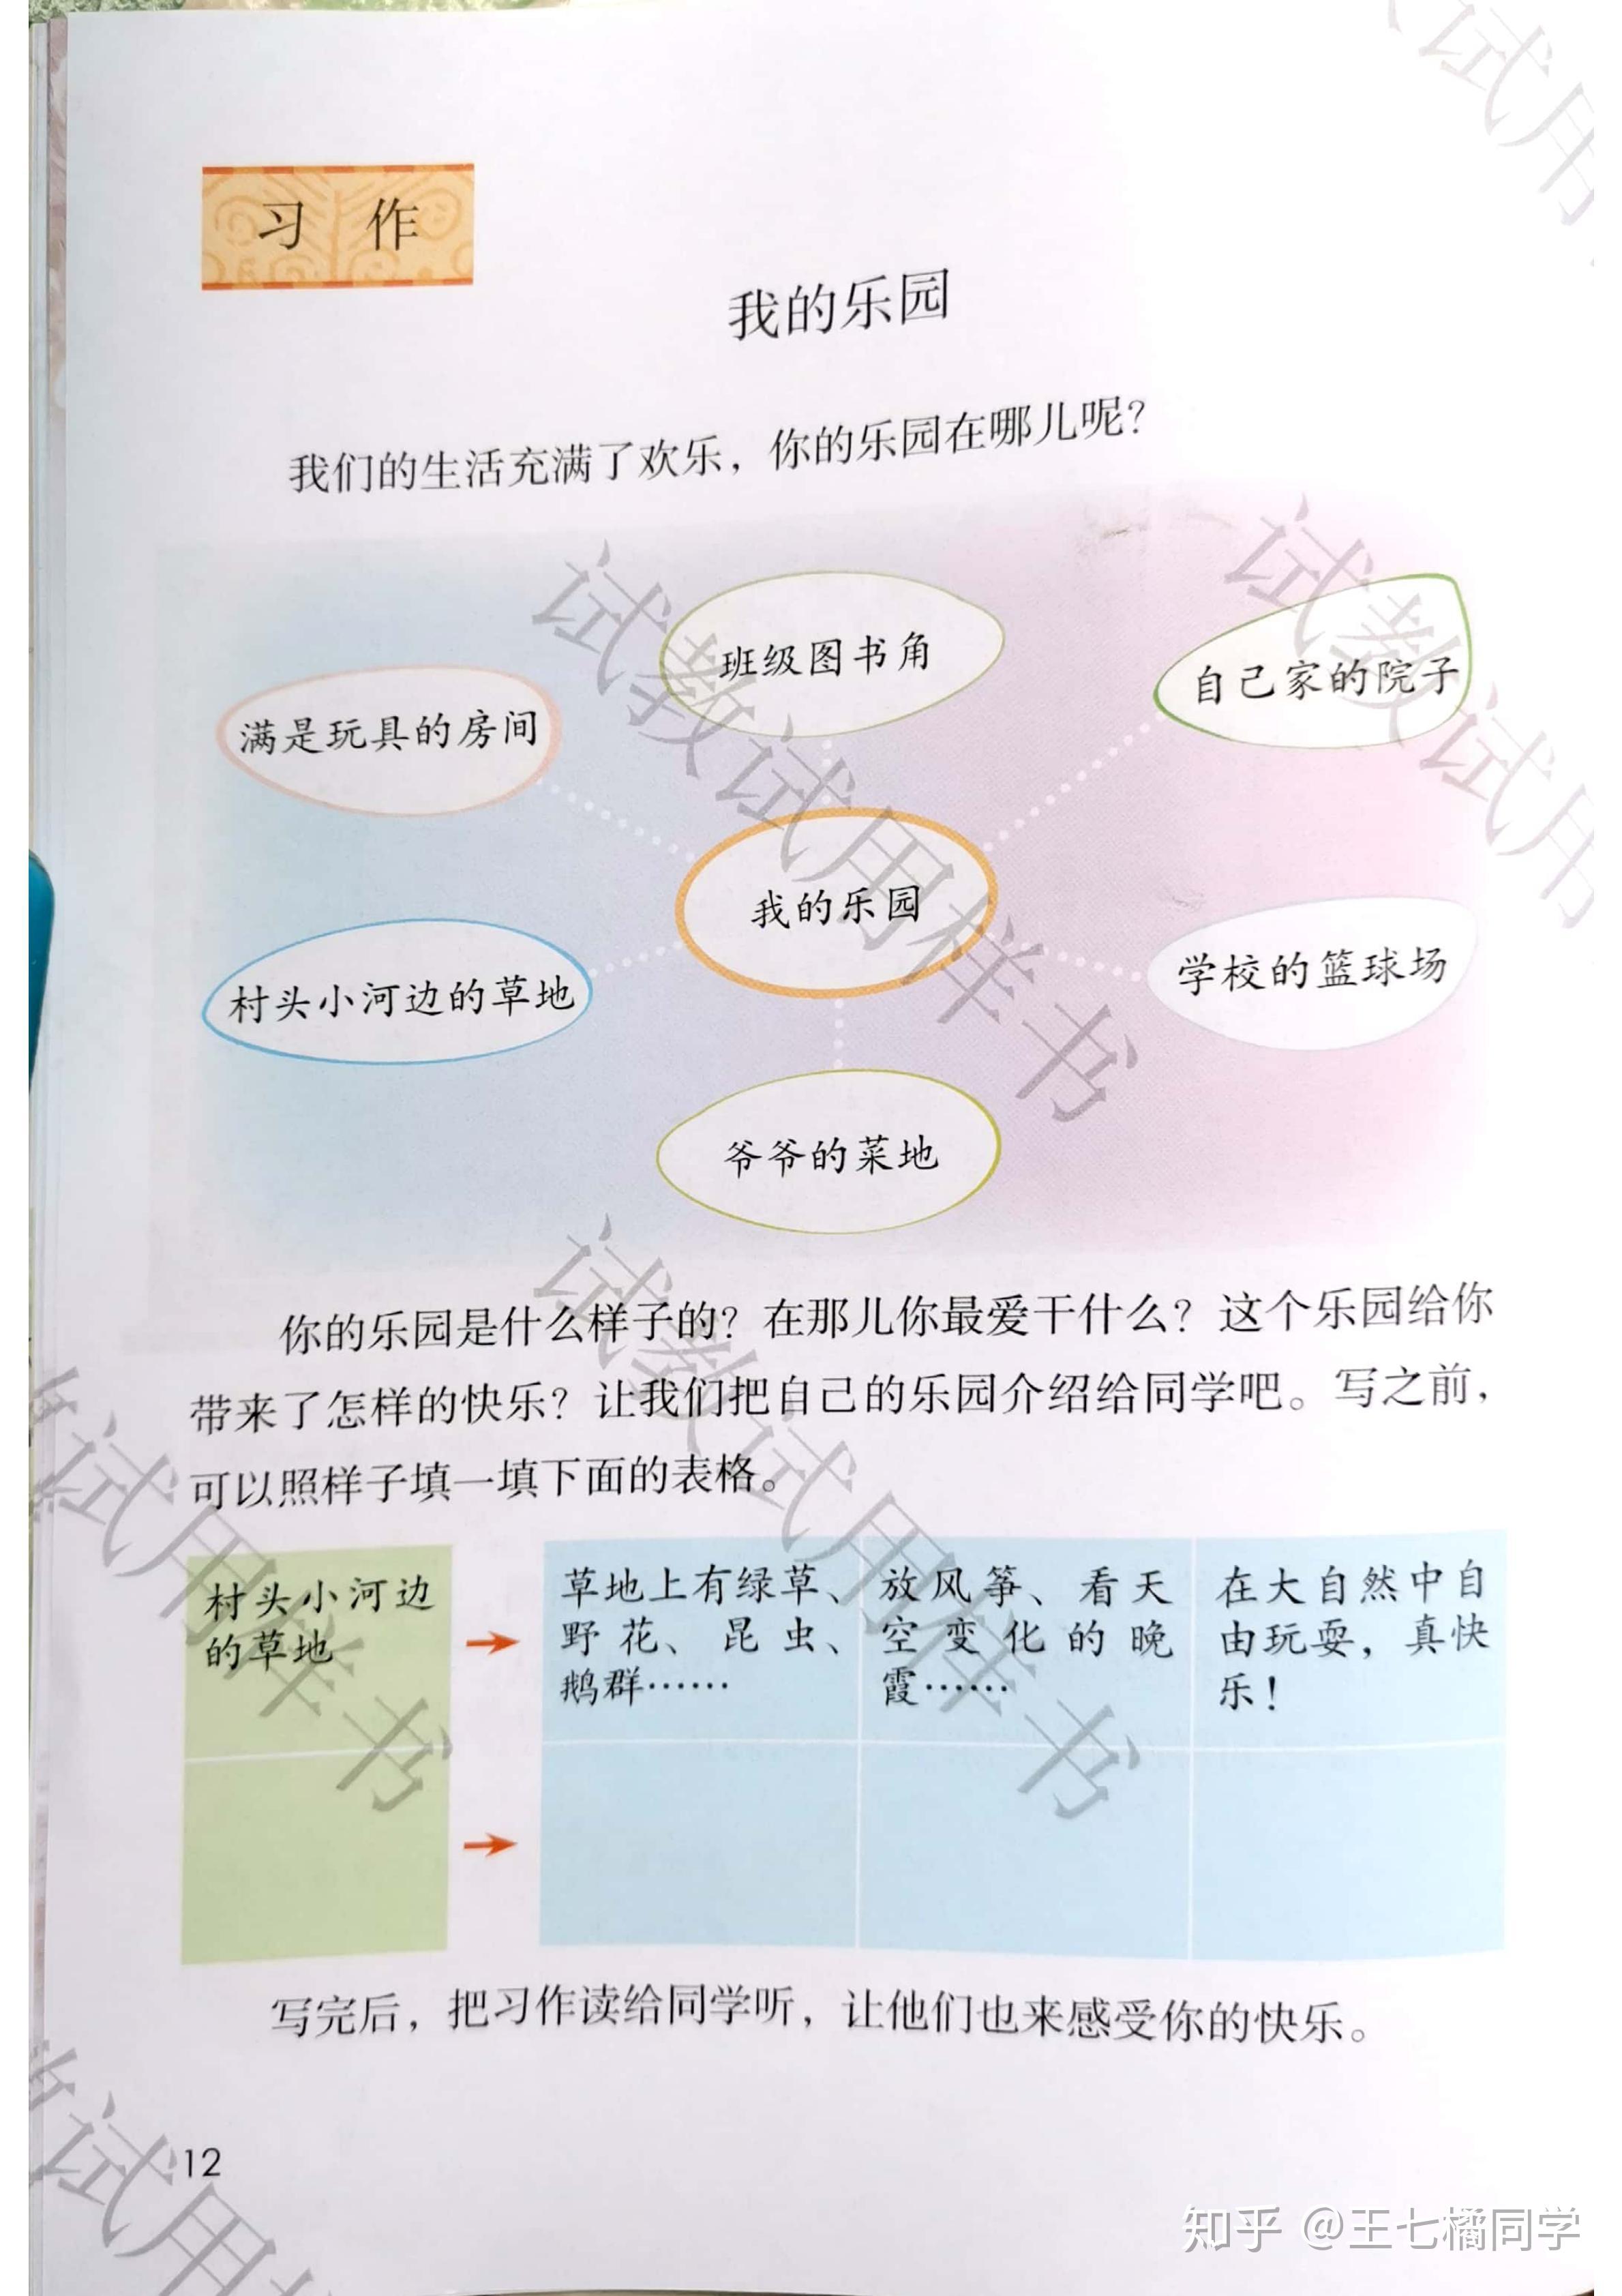 习 作
我的乐园
我们的生活充满了欢乐，你的乐园在哪儿呢？
班级图书角
自己家的院子
满是玩具的房间
我的乐园
学校的篮球场
村头小河边的草地
爷爷的菜地
你的乐园是什么样子的？在那儿你最爱干什么？这个乐园给你
带来了怎样的快乐？让我们把自己的乐园介绍给同学吧。写之前，
可以照样子填一填下面的表格。
村头小河边
的草地
草地上有绿草、
野花、昆虫、
鹅群……
放风筝、看天
空变化的晚
霞……
在大自然中自
由玩耍，真快
乐！
写完后，把习作读给同学听，让他们也来感受你的快乐。
12
知乎 @王七橘同学
试教试用样书
试教试用
试教试用样书
试用样书
试用
试用